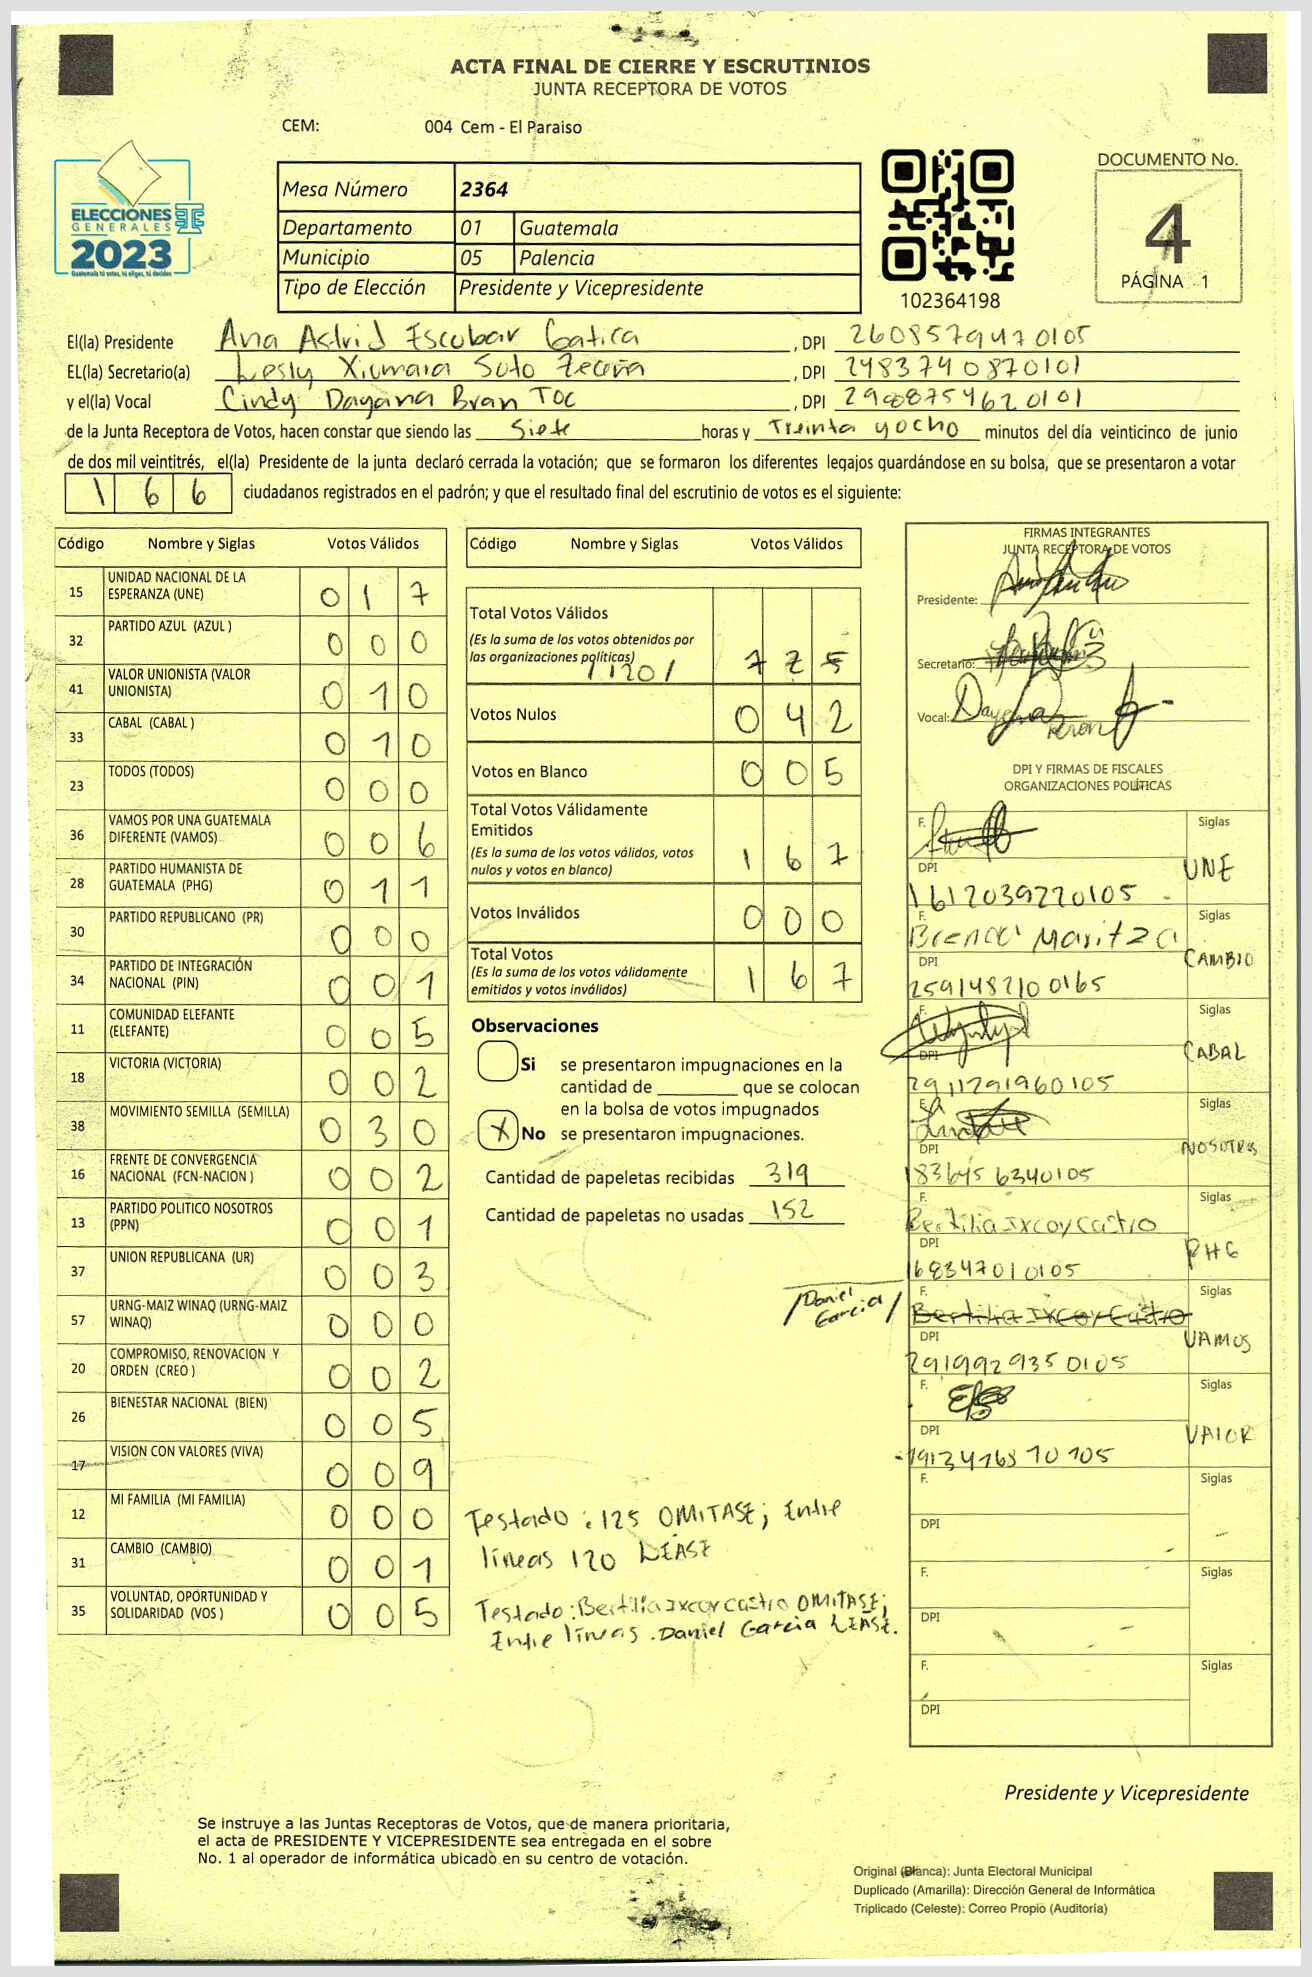 ACTA FINAL DE CIERRE Y ESCRUTINIOS
JUNTA RECEPTORA DE VOTOS
CEM: 004 Cem - El Paraiso
ELECCIONES
GENERALES
2023
Guatemala tú votas, tú eliges, tú decides
Mesa Número 2364
Departamento 01 Guatemala
Municipio 05 Palencia
Tipo de Elección Presidente y Vicepresidente
102364198
DOCUMENTO No.
4
PÁGINA 1
El(la) Presidente Ana Astrid Escobar Gatica, DPI 2608579470105
EL(la) Secretario(a) Lesly Xiomara Soto Zeceña, DPI 2483740870101
y el(la) Vocal Cindy Dayana Bran Toc, DPI 2908754620101
de la Junta Receptora de Votos, hacen constar que siendo las Siete horas y Treinta y ocho minutos del día veinticinco de junio
de dos mil veintitrés, el(la) Presidente de la junta declaró cerrada la votación; que se formaron los diferentes legajos guardándose en su bolsa, que se presentaron a votar
166 ciudadanos registrados en el padrón; y que el resultado final del escrutinio de votos es el siguiente:
Código Nombre y Siglas Votos Válidos
15 UNIDAD NACIONAL DE LA ESPERANZA (UNE) 017
32 PARTIDO AZUL (AZUL ) 000
41 VALOR UNIONISTA (VALOR UNIONISTA) 010
33 CABAL (CABAL ) 010
23 TODOS (TODOS) 000
36 VAMOS POR UNA GUATEMALA DIFERENTE (VAMOS) 006
28 PARTIDO HUMANISTA DE GUATEMALA (PHG) 011
30 PARTIDO REPUBLICANO (PR) 000
34 PARTIDO DE INTEGRACIÓN NACIONAL (PIN) 001
11 COMUNIDAD ELEFANTE (ELEFANTE) 005
18 VICTORIA (VICTORIA) 002
38 MOVIMIENTO SEMILLA (SEMILLA) 030
16 FRENTE DE CONVERGENCIA NACIONAL (FCN-NACION ) 002
13 PARTIDO POLITICO NOSOTROS (PPN) 001
37 UNION REPUBLICANA (UR) 003
57 URNG-MAIZ WINAQ (URNG-MAIZ WINAQ) 000
20 COMPROMISO, RENOVACION Y ORDEN (CREO ) 002
26 BIENESTAR NACIONAL (BIEN) 005
17 VISION CON VALORES (VIVA) 009
12 MI FAMILIA (MI FAMILIA) 000
31 CAMBIO (CAMBIO) 001
35 VOLUNTAD, OPORTUNIDAD Y SOLIDARIDAD (VOS ) 005
Código Nombre y Siglas Votos Válidos
Total Votos Válidos
(Es la suma de los votos obtenidos por
las organizaciones políticas)
/120/ 125
Votos Nulos 042
Votos en Blanco 005
Total Votos Válidamente
Emitidos
(Es la suma de los votos válidos, votos
nulos y votos en blanco) 167
Votos Inválidos 000
Total Votos
(Es la suma de los votos válidamente
emitidos y votos inválidos) 167
Observaciones
Si se presentaron impugnaciones en la
cantidad de ________ que se colocan
en la bolsa de votos impugnados
X No se presentaron impugnaciones.
Cantidad de papeletas recibidas 319
Cantidad de papeletas no usadas 152
/Daniel
Garcia/
Testado: 125 OMITASE; Entre
lineas 120 LEASE
Testado: Bertilia Ixcoy Castro OMITASE;
Entre lineas. Daniel Garcia LEASE.
FIRMAS INTEGRANTES
JUNTA RECEPTORA DE VOTOS
Presidente:
Secretario:
Vocal:
DPI Y FIRMAS DE FISCALES
ORGANIZACIONES POLÍTICAS
F. Siglas
DPI UNE
1612039220105
F. Brenda Maritza Siglas
DPI CAMBIO
2591482100165
F. Siglas
DPI CABAL
2911291960105
F. Siglas
DPI NOSOTROS
1836456340105
F. Bertilia Ixcoy Castro Siglas
DPI PHG
168347010105
F. Bertilia Ixcoy Castro Siglas
DPI VAMOS
2919929350105
F. Siglas
DPI VALOR
1913416870105
F. Siglas
DPI
F. Siglas
DPI
F. Siglas
DPI
Presidente y Vicepresidente
Se instruye a las Juntas Receptoras de Votos, que de manera prioritaria,
el acta de PRESIDENTE Y VICEPRESIDENTE sea entregada en el sobre
No. 1 al operador de informática ubicado en su centro de votación.
Original (Blanca): Junta Electoral Municipal
Duplicado (Amarilla): Dirección General de Informática
Triplicado (Celeste): Correo Propio (Auditoría)